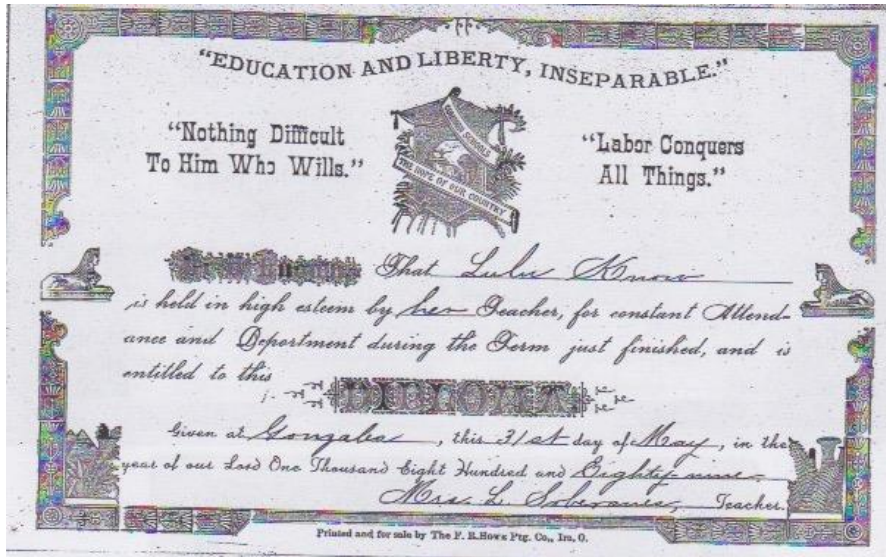 "EDUCATION AND LIBERTY, INSEPARABLE."
"Nothing Difficult
To Him Who Wills."
SCHOOLS
THE HOPE OF OUR COUNTRY
"Labor Conquers
All Things."
That Lulu Know
is held in high esteem by her Teacher, for constant Attend-
ance and Deportment during the Term just finished, and is
entitled to this
DIPLOMA
Given at Gonzales, this 31st day of May, in the
year of our Lord One Thousand Eight Hundred and Eighty-nine
Mrs. L. Soberanes, Teacher.
Printed and for sale by The F. R. Howe Ptg. Co., Ira, O.